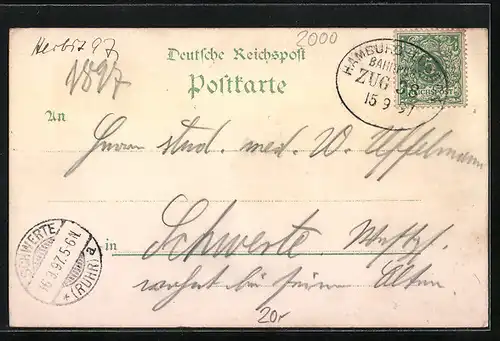 Herbst 97
1897
2000
Deutsche Reichspost
Postkarte
HAMBURG
BAHNPOST
ZUG 38
15 9 97
5
REICHSPOST
An
Herrn stud. med. W. Uffelmann
in Schwerte Westf.
wohnt bei seinen Alten
SCHWERTE
16.9.97.5-6N.
* (RUHR) a
20r